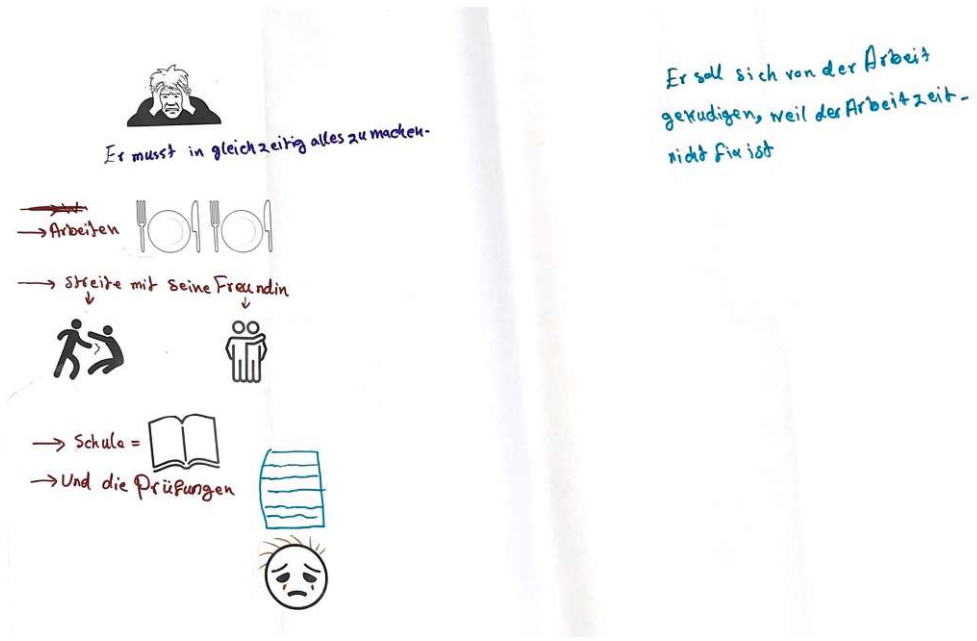 Er musst in gleichzeitig alles zu machen-
→ Arbeiten
→ Streite mit seine Freundin
→ Schule =
→ Und die Prüfungen
Er soll sich von der Arbeit
gekudigen, weil der Arbeitzeit-
nicht fix ist